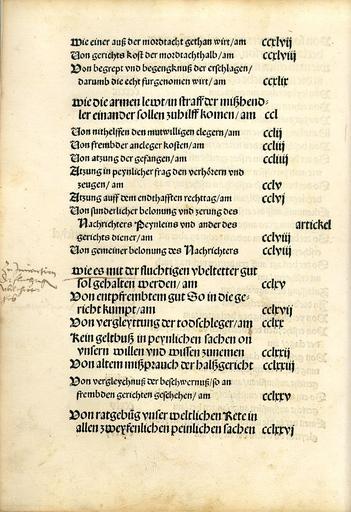 Wie einer auß der mordtacht gethan wirt/am ccxlvij
Von gerichts kost der mordtachthalb/am ccxlviij
Von begrept vnd begengknuß der erschlagen/
darumb die echt furgenomen wirt/am ccxlix
wie die armen lewt/in straff der mißhend-
ler einander sollen zuhilff komen/am ccl
Von nithelffen den mutwilligen clegern/am cclij
Von frembder ancleger kosten/am ccliij
Von atzung der gefangen/am ccliiij
Atzung in peynlicher frag den verhörern vnd
zeugen/am cclv
Atzung auff dem endthafften rechttag/am cclvj
Von sunderlicher belonung vnd zerung des
Nachrichters Peynleins vnd ander des artickel
gerichts diener/am cclviij
Von gemeiner belonung des Nachrichters cclviij
wie es mit der fluchtigen vbeltetter gut
sol gehalten werden/am cclxv
Von entpfrembtem gut So in die ge-
richt kumpt/am cclxvij
Von vergleyttung der todschleger/am cclxx
Kein geltbuß in peynlichen sachen on
vnsern willen vnd wissen zunemen cclxxij
Von altem mißprauch der halßgericht cclxxiij
Von vergleychnuß der beschwernuß/so an
frembden gerichten geschehen/am cclxxv
Von ratgebũg vnser weltlichen Rete in
allen zweyfenlichen peinlichen sachen cclxxvj